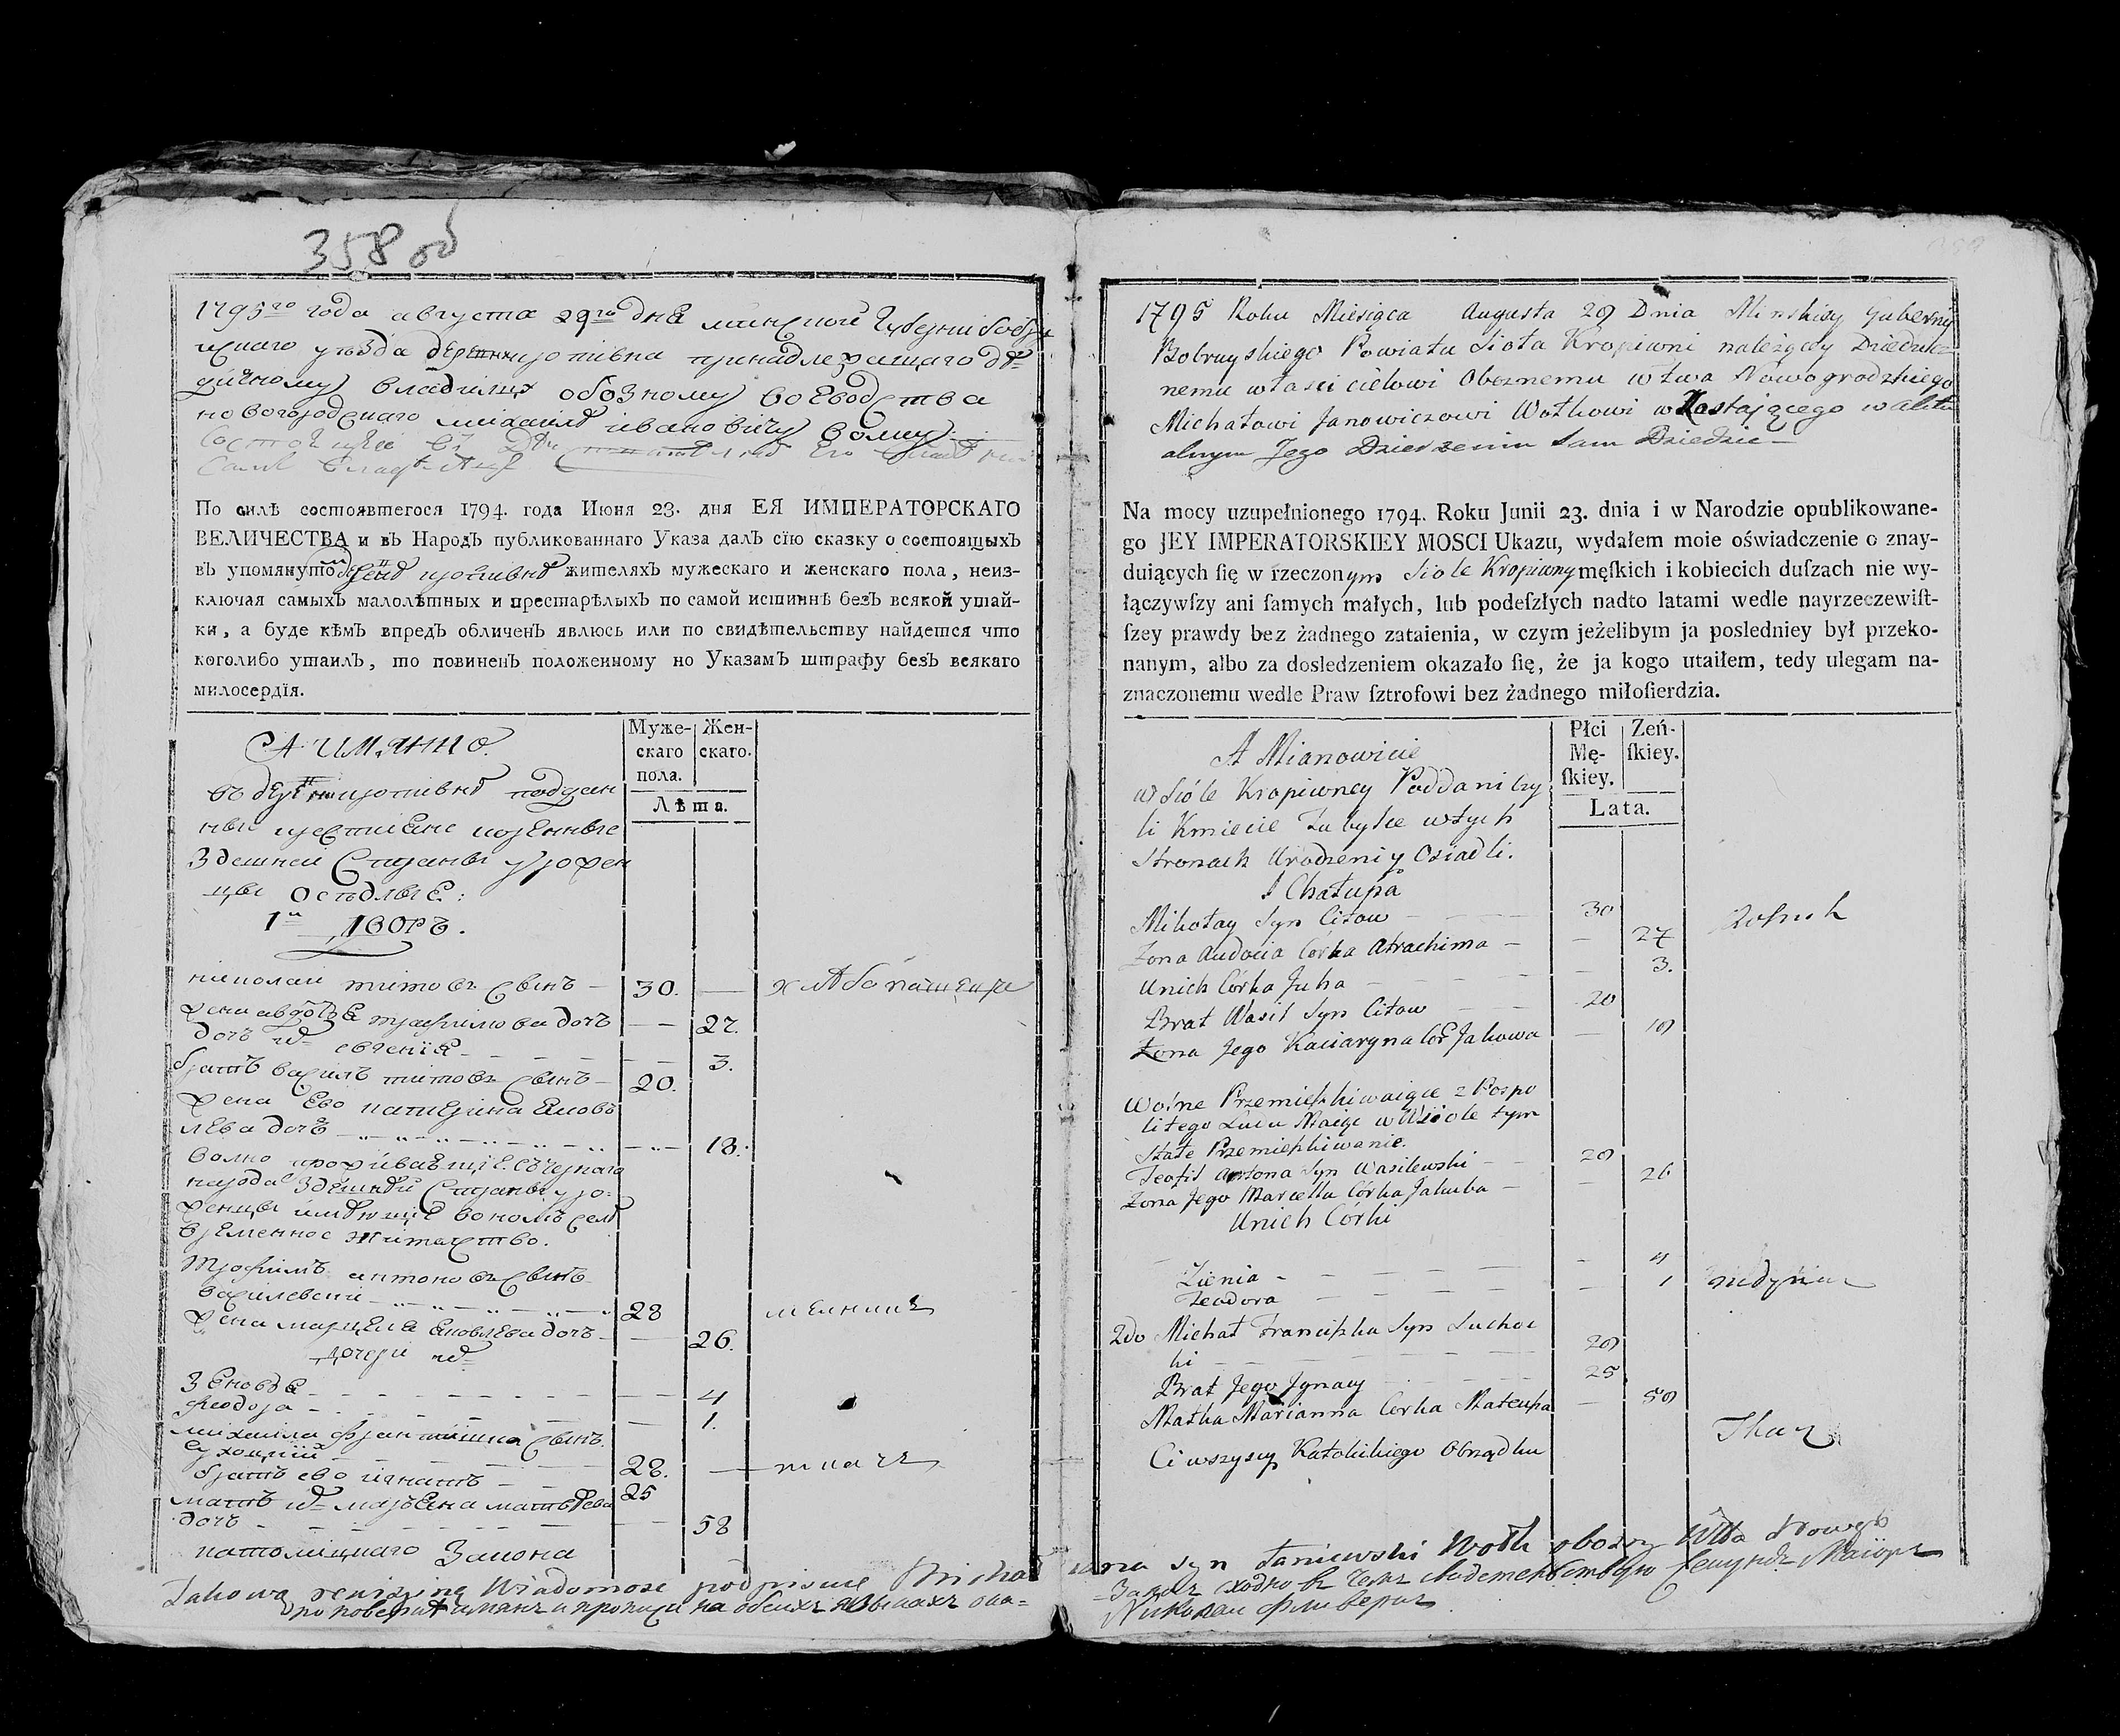 358 об
1795го года августа 29го дня минской губерніи бобру
искаго уезда деревни кропівна принадлежащаго
владельцу обозному воеводства
новогородскаго міхаилу івановічу волку
По силѣ состоявтегося 1794. года Июня 23. дня ЕЯ ИМПЕРАТОРСКАГО
ВЕЛИЧЕСТВА и вЪ НародЪ публикованнаго Указа далЪ сїю сказку о состоящыхЪ
вЪ упомянуто деревне кропівне жителяхЪ мужескаго и женскаго пола, неиз-
ключая самыхЪ малолѣтных и престарѣлыхЪ по самой истиннѣ безЪ всякой утай-
ки, а буде кѣмЪ впредЪ обличенЪ явлюсь или по свидѣтельству найдется что
коголибо утаилЪ, то повиненЪ положенному по УказамЪ штрафу безЪ всякаго
милосердїя.
А имянно.
Муже- Жен-
скаго скаго.
пола.
Лѣта.
въ деревни кропівне поддан
ные крестияне коренные
Здешней Стараны урожен
цы оседлые:
1й Дворъ.
николаи титовъ сынъ — 30. — хлебопашецъ
жена авдотья трафимова дочь — 27.
дочь их евгения — 3.
братъ василъ титовъ сынъ — 20.
жена Ево катерина Яков
лева дочь — 18.
волно проживающие
народа здешней Стараны уро-
женцы имеющие селе
временное жителство.
трофимъ антоновъ сынъ
василевски — 28 мелникъ
жена марцеля яковлева дочь — 26.
дочери их
Зеновья — 4
феодора — 1.
михаила францишка сынъ
сухоцкий — 28. — ткачъ
братъ ево игнатъ — 25
мать их марьяна матвеева
дочь — 58
католицкаго Закона
Takową rewizyiną Wiadomosc podpisuie Michał
1795 Roku Miesiąca Augusta 29 Dnia Minskiey Gubernij
Bobruyskiego Powiatu Sioła Kropiwni należącey Dziedzicz
nemu własci cielowi Oboznemu wtwa Nowogrodzkiego
Michałowi Janowiczowi Wołkowi w Zostającego w aktu
alnym Jego Dzierzeniu Sam Dziedzic —
Na mocy uzupełnionego 1794. Roku Junii 23. dnia i w Narodzie opublikowane-
go JEY IMPERATORSKIEY MOSCI Ukazu, wydałem moie oświadczenie o znay-
duiących ſię w rzeczonym Siole Kropiwny męſkich i kobiecich duſzach nie wy-
łączywſzy ani ſamych małych, lub podeſzłych nadto latami wedle nayrzeczewiſt-
ſzey prawdy bez żadnego zataienia, w czym jeżelibym ja posledniey był przeko-
nanym, albo za dosledzeniem okazało ſię, że ja kogo utaiłem, tedy ulegam na-
znaczonemu wedle Praw ſztrofowi bez żadnego miłoſierdzia.
A Mianowicie
Płci Zeń-
Mę- ſkiey.
ſkiey.
Lata.
w Sióle Kropiwney Poddani czy
li Kmiecie Tubylce wtych
Stronach Urodzeni y Osiadli.
1 Chałupa
Mikołay Syn Citow — 30 Rolnik
Zona Audocia Córka Atrachima — 27
Unich Córka Juha — 3.
Brat Wasil Syn Citow — 20
Zona Jego Kaciaryna Cor Jakowa — 18
Wolne Przemieszkiwaiące z Pospo
litego Ludu Maiąc w Siole tym
Stałe Przemieszkiwanie.
Teofil Antona Syn Wasilewski — 28
Zona Jego Marcella Córka Jakuba — 26
Unich Córki
Zienia — 4
Teodora — 1
2do Michał Franciszka Syn Suchoc
ki — 28
Brat Jego Jgnacy 25
Matka Marianna Corka Mateusza — 58
Tkacz
Ci wszyscy Katolickiego Obrządku
Jana syn Łaniewski Wołk obozny Wtta Nowogo